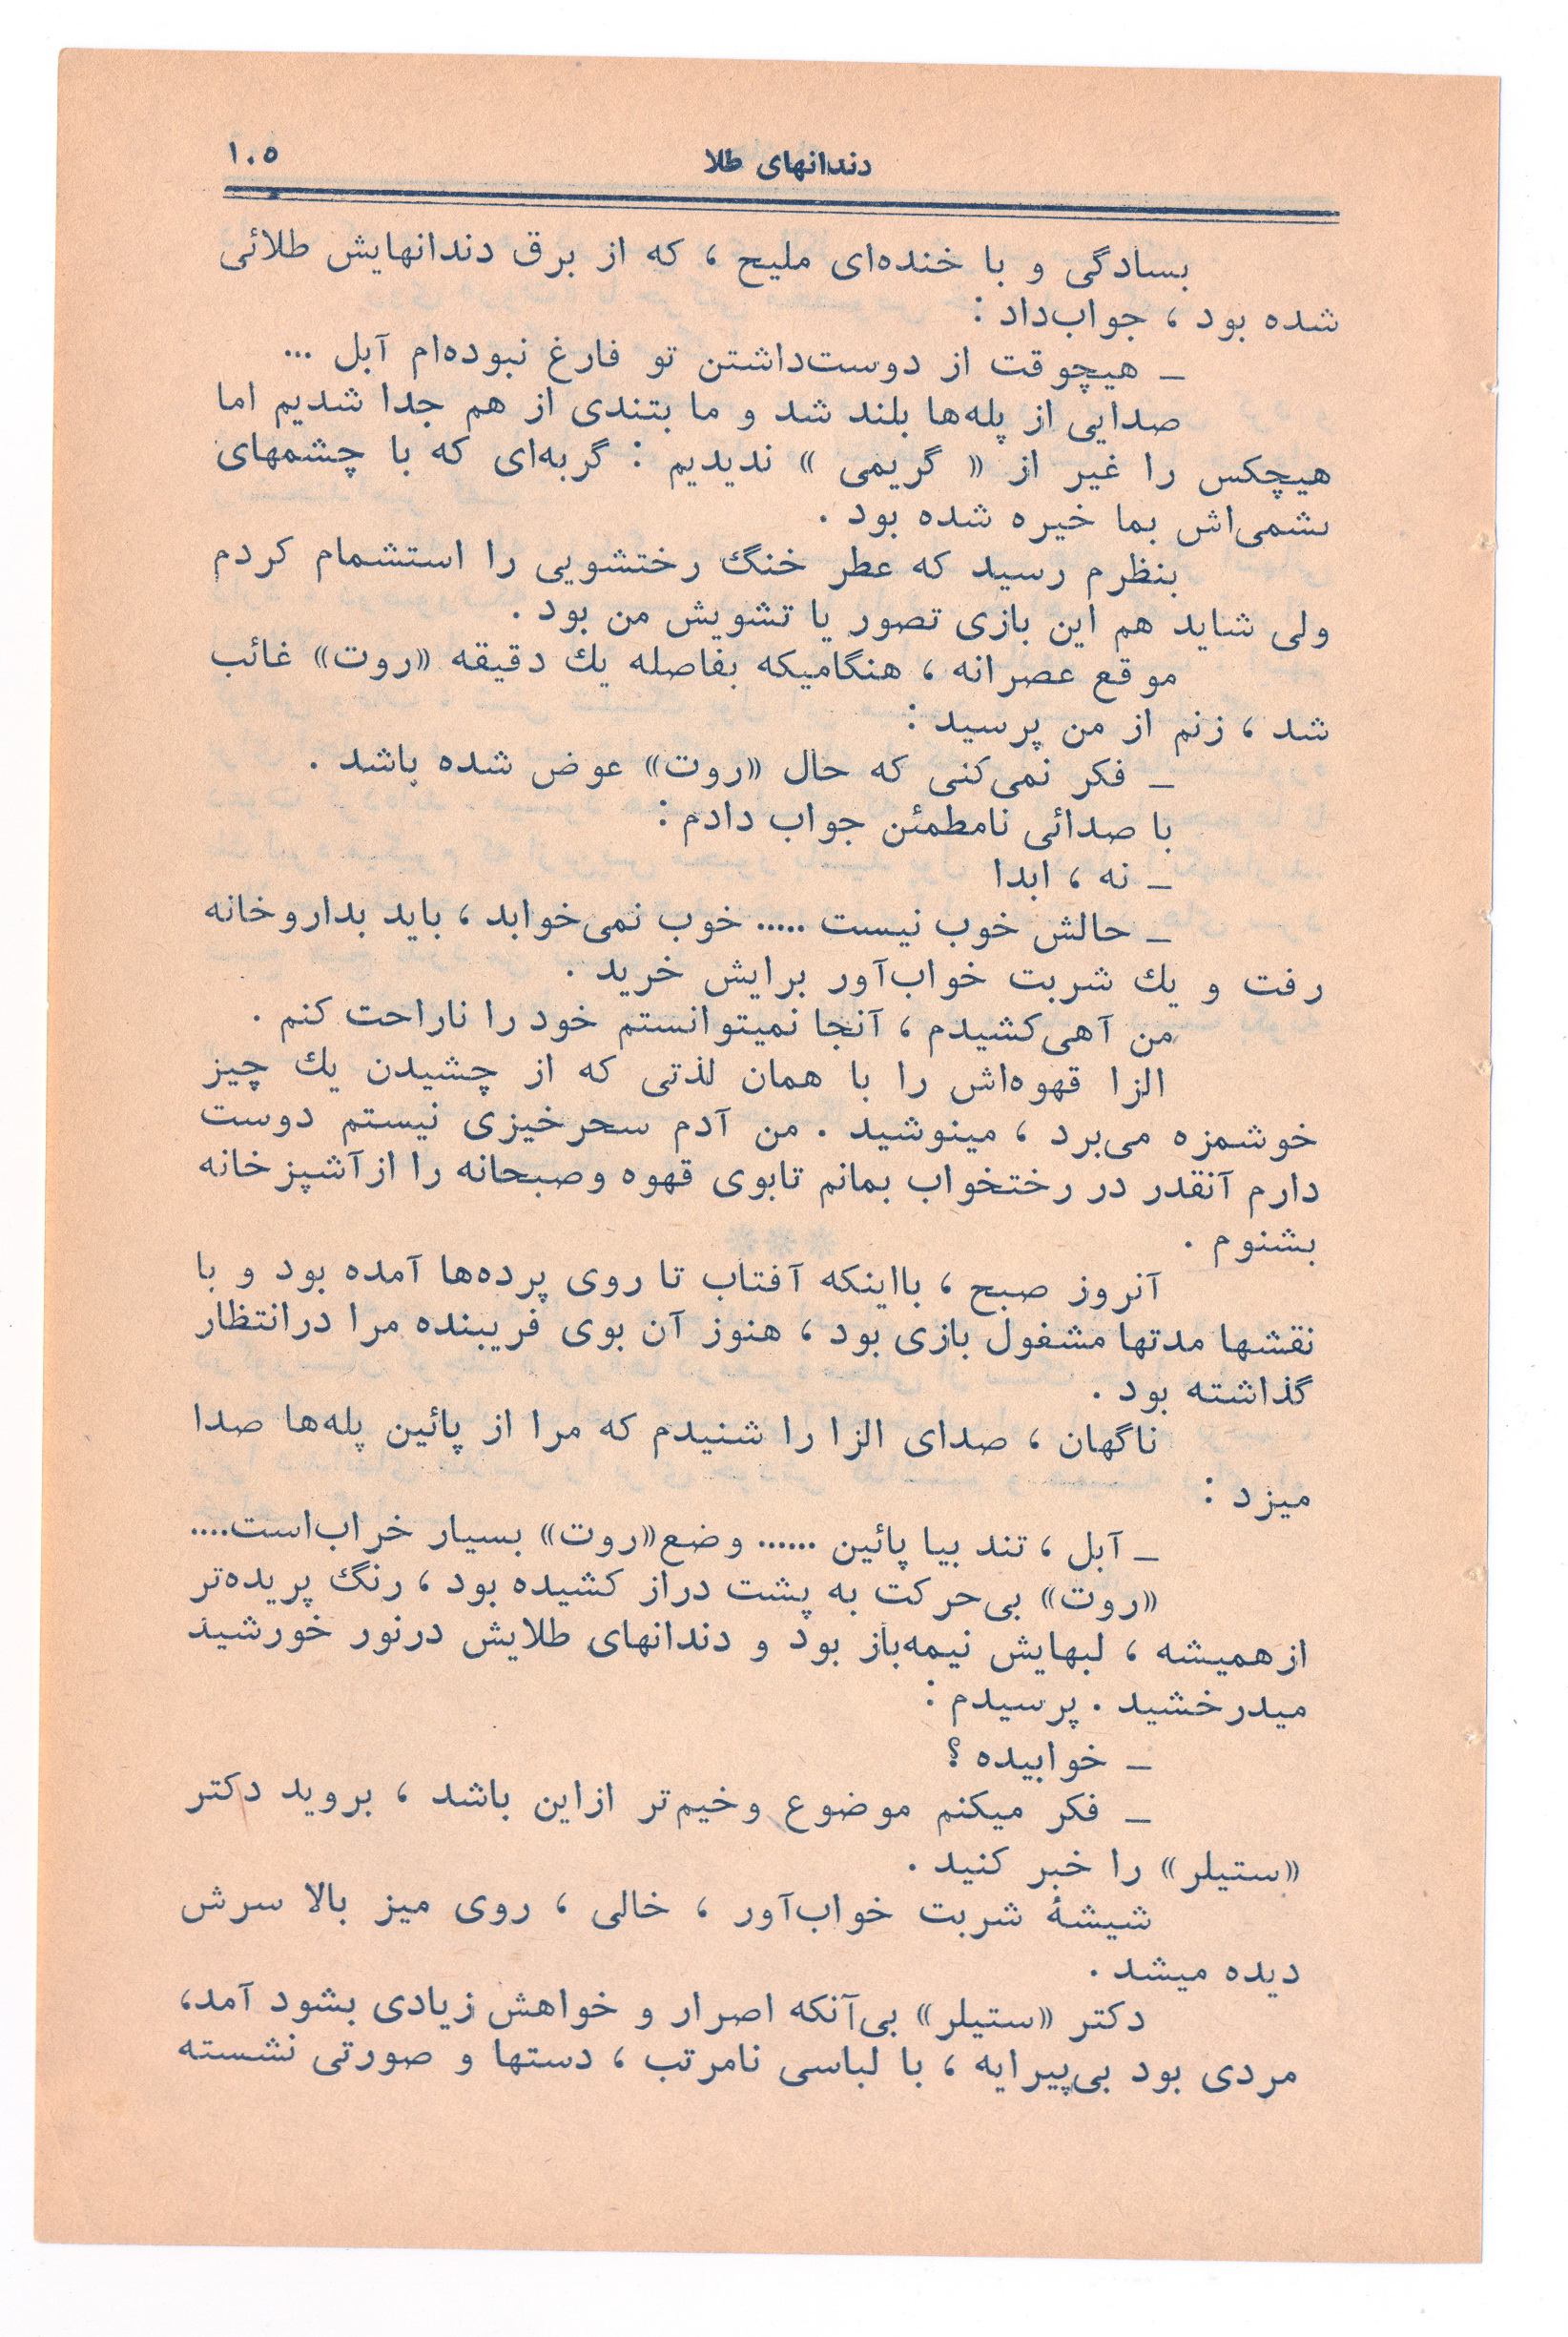 دندانهای طلا
۱۰۵
بسادگی و با خنده‌ای ملیح ، که از برق دندانهایش طلائی
شده بود ، جواب‌داد :
ـ هیچوقت از دوست‌داشتن تو فارغ نبوده‌ام آبل ...
صدایی از پله‌ها بلند شد و ما بتندی از هم جدا شدیم اما
هیچکس را غیر از « گریمی » ندیدیم : گربه‌ای که با چشمهای
یشمی‌اش بما خیره شده بود .
بنظرم رسید که عطر خنگ رختشویی را استشمام کردم
ولی شاید هم این بازی تصور یا تشویش من بود .
موقع عصرانه ، هنگامیکه بفاصله یك دقیقه «روت» غائب
شد ، زنم از من پرسید :
ـ فکر نمی‌کنی که حال «روت» عوض شده باشد .
با صدائی نامطمئن جواب دادم :
ـ نه ، ابدا
ـ حالش خوب نیست ..... خوب نمی‌خوابد ، باید بداروخانه
رفت و یك شربت خواب‌آور برایش خرید .
من آهی‌کشیدم ، آنجا نمیتوانستم خود را ناراحت کنم .
الزا قهوه‌اش را با همان لذتی که از چشیدن یك چیز
خوشمزه می‌برد ، مینوشید . من آدم سحرخیزی نیستم دوست
دارم آنقدر در رختخواب بمانم تابوی قهوه وصبحانه را ازآشپزخانه
بشنوم .
آنروز صبح ، بااینکه آفتاب تا روی پرده‌ها آمده بود و با
نقشها مدتها مشغول بازی بود ، هنوز آن بوی فریبنده مرا درانتظار
گذاشته بود .
ناگهان ، صدای الزا را شنیدم که مرا از پائین پله‌ها صدا
میزد :
ـ آبل ، تند بیا پائین ...... وضع«روت» بسیار خراب‌است....
«روت» بی‌حرکت به پشت دراز کشیده بود ، رنگ پریده‌تر
ازهمیشه ، لبهایش نیمه‌باز بود و دندانهای طلایش درنور خورشید
میدرخشید . پرسیدم :
ـ خوابیده ؟
ـ فکر میکنم موضوع وخیم‌تر ازاین باشد ، بروید دکتر
«ستیلر» را خبر کنید .
شیشهٔ شربت خواب‌آور ، خالی ، روی میز بالا سرش
دیده میشد .
دکتر «ستیلر» بی‌آنکه اصرار و خواهش زیادی بشود آمد،
مردی بود بی‌پیرایه ، با لباسی نامرتب ، دستها و صورتی نشسته